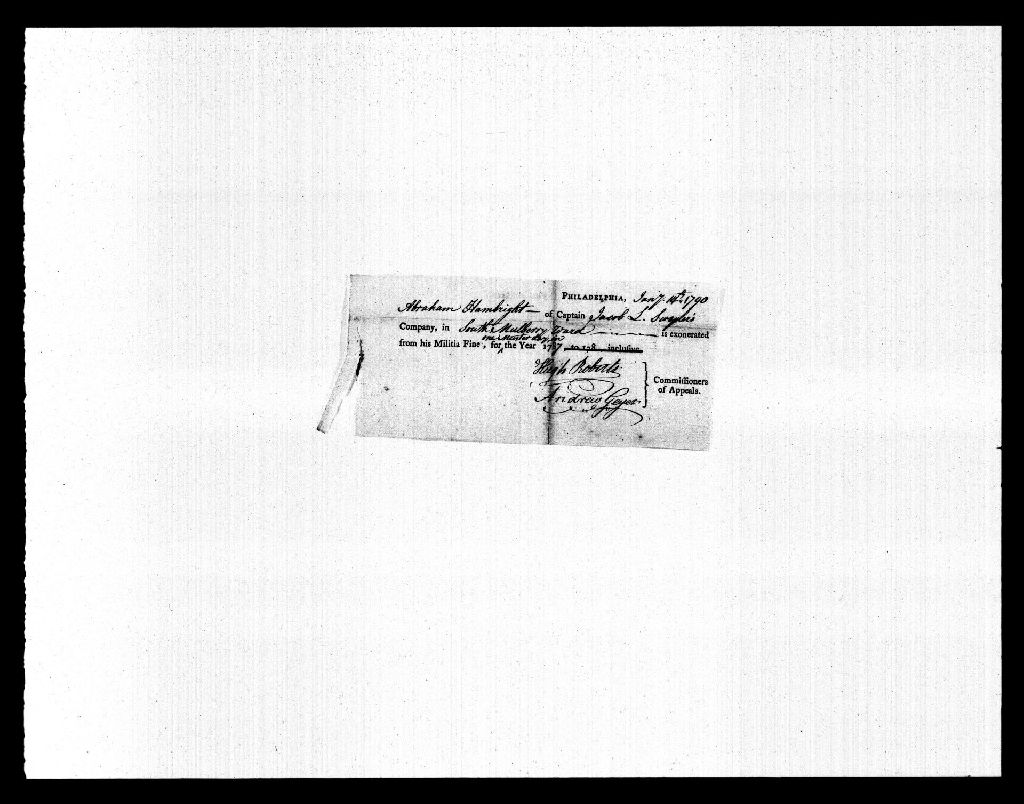 PHILADELPHIA, Jany. 14th. 1790
Abraham Hambright of Captain Jacob L.
Company, in South Mulberry Ward is exonerated
one Muster day
from his Militia Fine, for the Year 1787 to 178 inclusive.
Hugh Roberts
Andrew Geyer
Commissioners
of Appeals.